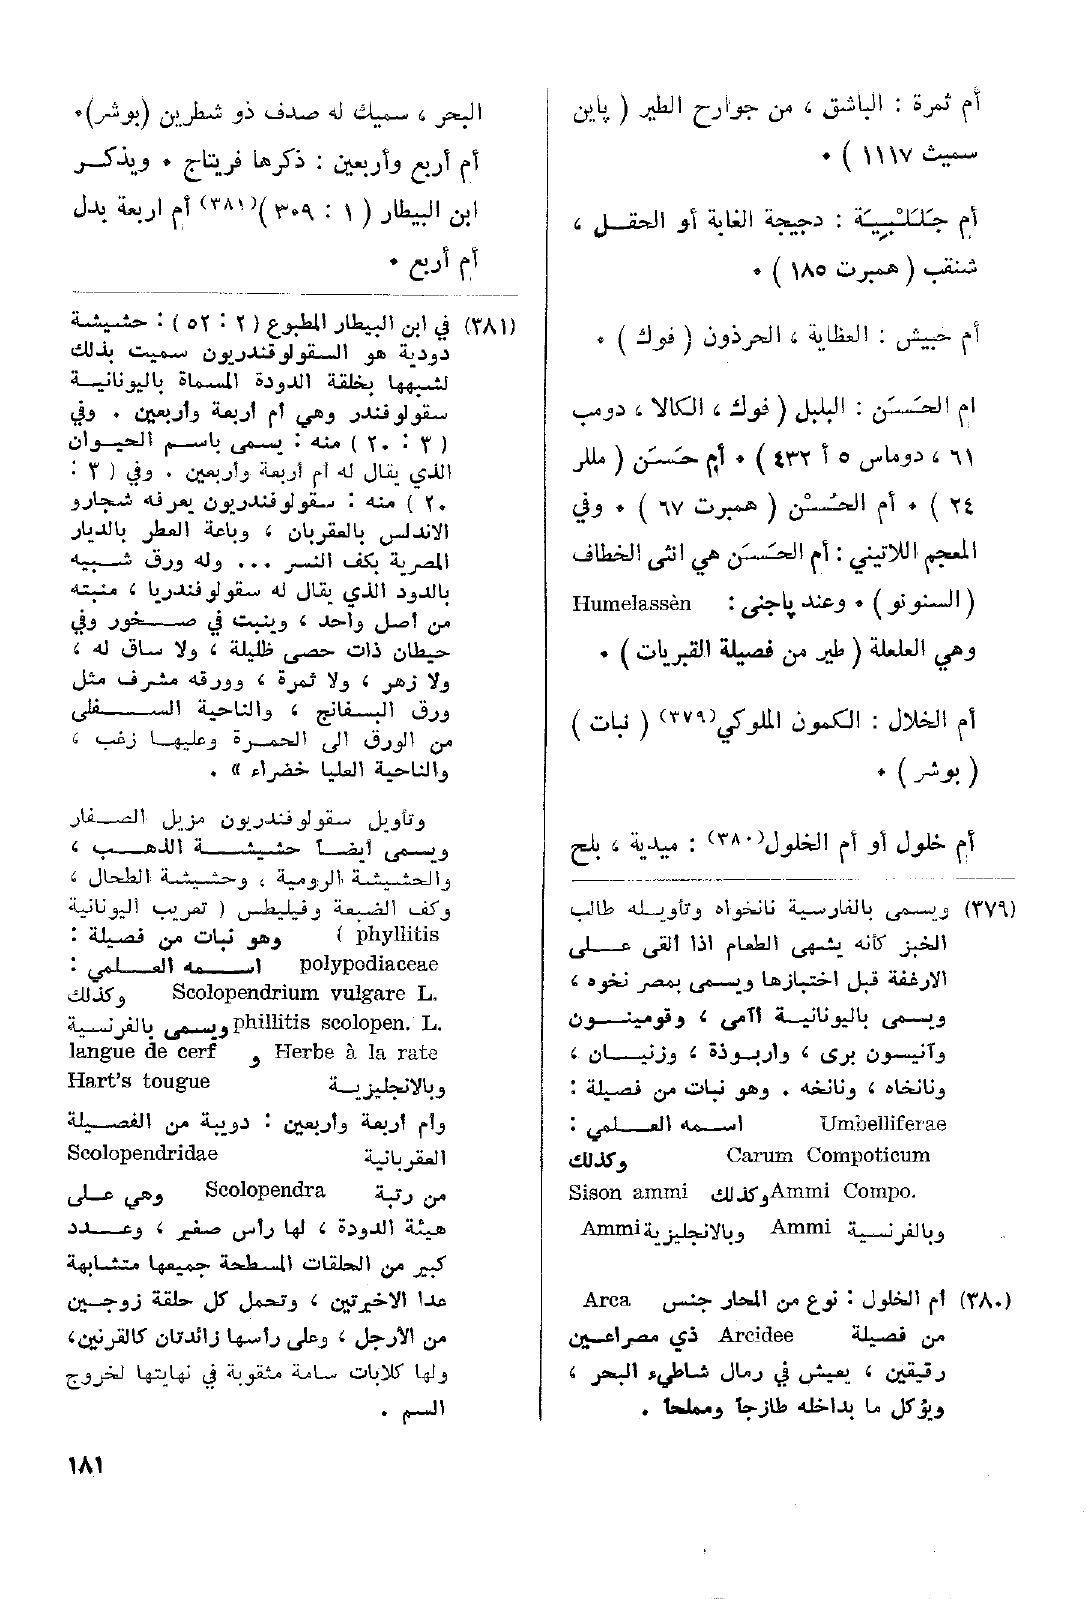 أم ثمرة : الباشق ، من جوارح الطير ( پاين
سميث ١١١٧ ) •
أم جَلَنْبِيَة : دجيجة الغابة أو الحقل ،
شنقب ( همبرت ١٨٥ ) •
أم حبيش : العظاية ، الحرذون ( فوك ) •
ام الحَسَن : البلبل ( فوك ، الكالا ، دومب
٦١ ، دوماس ٥ أ ٤٣٢ ) • أم حَسَن ( مللر
٢٤ ) • أم الحُسْن ( همبرت ٦٧ ) • وفي
المعجم اللاتيني : أم الحَسَن هي انثى الخطاف
( السنونو ) • وعند پاجني : Humelassèn
وهي العلعلة ( طير من فصيلة القبريات ) •
أم الخلال : الكمون الملوكي(٣٧٩) ( نبات )
( بوشر ) •
أم خلول أو أم الخلول(٣٨٠) : ميدية ، بلح
(٣٧٩) ويسمى بالفارسية نانخواه وتأويله طالب
الخبز كأنه يشهي الطعام اذا القى على
الارغفة قبل اختبازها ويسمى بمصر نخوه ،
ويسمى باليونانية آآمي ، وقومينون
وآنيسون بري ، واربوذة ، وزنيان ،
ونانخاه ، ونانخه . وهو نبات من فصيلة :
Umbelliferae اسمه العلمي :
Carum Compoticum وكذلك
Ammi Compo. وكذلك Sison ammi
وبالفرنسية Ammi وبالانجليزية Ammi
(٣٨٠) ام الخلول : نوع من المحار جنس Arca
من فصيلة Arcidee ذي مصراعين
رقيقين ، يعيش في رمال شاطىء البحر ،
ويؤكل ما بداخله طازجا ومملحا .
البحر ، سميك له صدف ذو شطرين (بوشر)•
أم أربع وأربعين : ذكرها فريتاج • ويذكر
ابن البيطار ( ١ : ٣٠٩ )(٣٨١) أم اربعة بدل
أم أربع •
(٣٨١) في ابن البيطار المطبوع ( ٢ : ٥٢ ) : حشيشة
دودية هو السقولوقندريون سميت بذلك
لشبهها بخلقة الدودة المسماة باليونانية
سقولوفندر وهي أم أربعة وأربعين . وفي
( ٣ : ٢٠ ) منه : يسمى باسم الحيوان
الذي يقال له ام أربعة وأربعين . وفي ( ٣ :
٢٠ ) منه : سقولوفندريون يعرفه شجارو
الاندلس بالعقربان ، وباعة العطر بالديار
المصرية بكف النسر ... وله ورق شبيه
بالدود الذي يقال له سقولوفندريا ، منبته
من أصل واحد ، وينبت في صخور وفي
حيطان ذات حصى ظليلة ، ولا ساق له ،
ولا زهر ، ولا ثمرة ، وورقه مشرف مثل
ورق البسفانج ، والناحية السفلى
من الورق الى الحمرة وعليها زغب ،
والناحية العليا خضراء » .
وتأويل سقولوفندريون مزيل الصفار
ويسمى أيضاً حشيشة الذهب ،
والحشيشة الرومية ، وحشيشة الطحال ،
وكف الضبعة وفيليطس ( تعريب اليونانية
phyllitis ) وهو نبات من فصيلة :
polypodiaceae اسمه العلمي :
Scolopendrium vulgare L. وكذلك
phillitis scolopen. L. ويسمى بالفرنسية
Herbe à la rate و langue de cerf
وبالانجليزية Hart's tougue
وأم اربعة وأربعين : دويبة من الفصيلة
العقربانية Scolopendridae
من رتبة Scolopendra وهي على
هيئة الدودة ، لها رأس صغير ، وعدد
كبير من الحلقات المسطحة جميعها متشابهة
عدا الاخيرتين ، وتحمل كل حلقة زوجين
من الأرجل ، وعلى رأسها زائدتان كالقرنين،
ولها كلابات سامة مثقوبة في نهايتها لخروج
السم .
١٨١